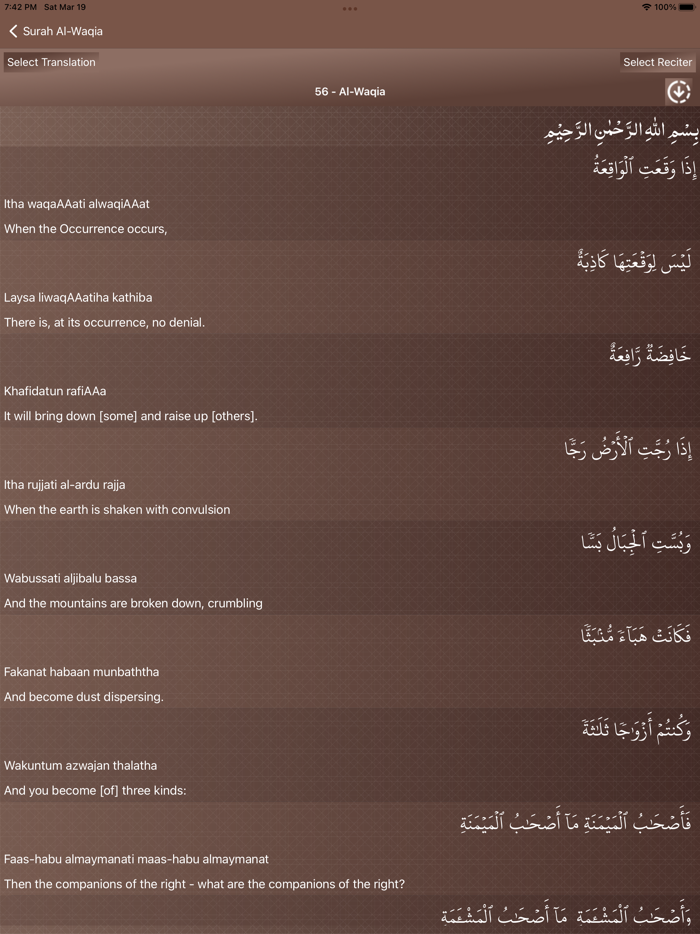 7:42 PM Sat Mar 19
100%
Surah Al-Waqia
Select Translation
Select Reciter
56 - Al-Waqia
بِسْمِ اللهِ الرَّحْمٰنِ الرَّحِيْمِ
إِذَا وَقَعَتِ ٱلْوَاقِعَةُ
Itha waqaAAati alwaqiAAat
When the Occurrence occurs,
لَيْسَ لِوَقْعَتِهَا كَاذِبَةٌ
Laysa liwaqAAatiha kathiba
There is, at its occurrence, no denial.
خَافِضَةٌ رَّافِعَةٌ
Khafidatun rafiAAa
It will bring down [some] and raise up [others].
إِذَا رُجَّتِ ٱلْأَرْضُ رَجًّا
Itha rujjati al-ardu rajja
When the earth is shaken with convulsion
وَبُسَّتِ ٱلْجِبَالُ بَسًّا
Wabussati aljibalu bassa
And the mountains are broken down, crumbling
فَكَانَتْ هَبَآءً مُّنۢبَثًّا
Fakanat habaan munbaththa
And become dust dispersing.
وَكُنتُمْ أَزْوَٰجًا ثَلَٰثَةً
Wakuntum azwajan thalatha
And you become [of] three kinds:
فَأَصْحَٰبُ ٱلْمَيْمَنَةِ مَآ أَصْحَٰبُ ٱلْمَيْمَنَةِ
Faas-habu almaymanati maas-habu almaymanat
Then the companions of the right - what are the companions of the right?
وَأَصْحَٰبُ ٱلْمَشْـَٔمَةِ مَآ أَصْحَٰبُ ٱلْمَشْـَٔمَةِ